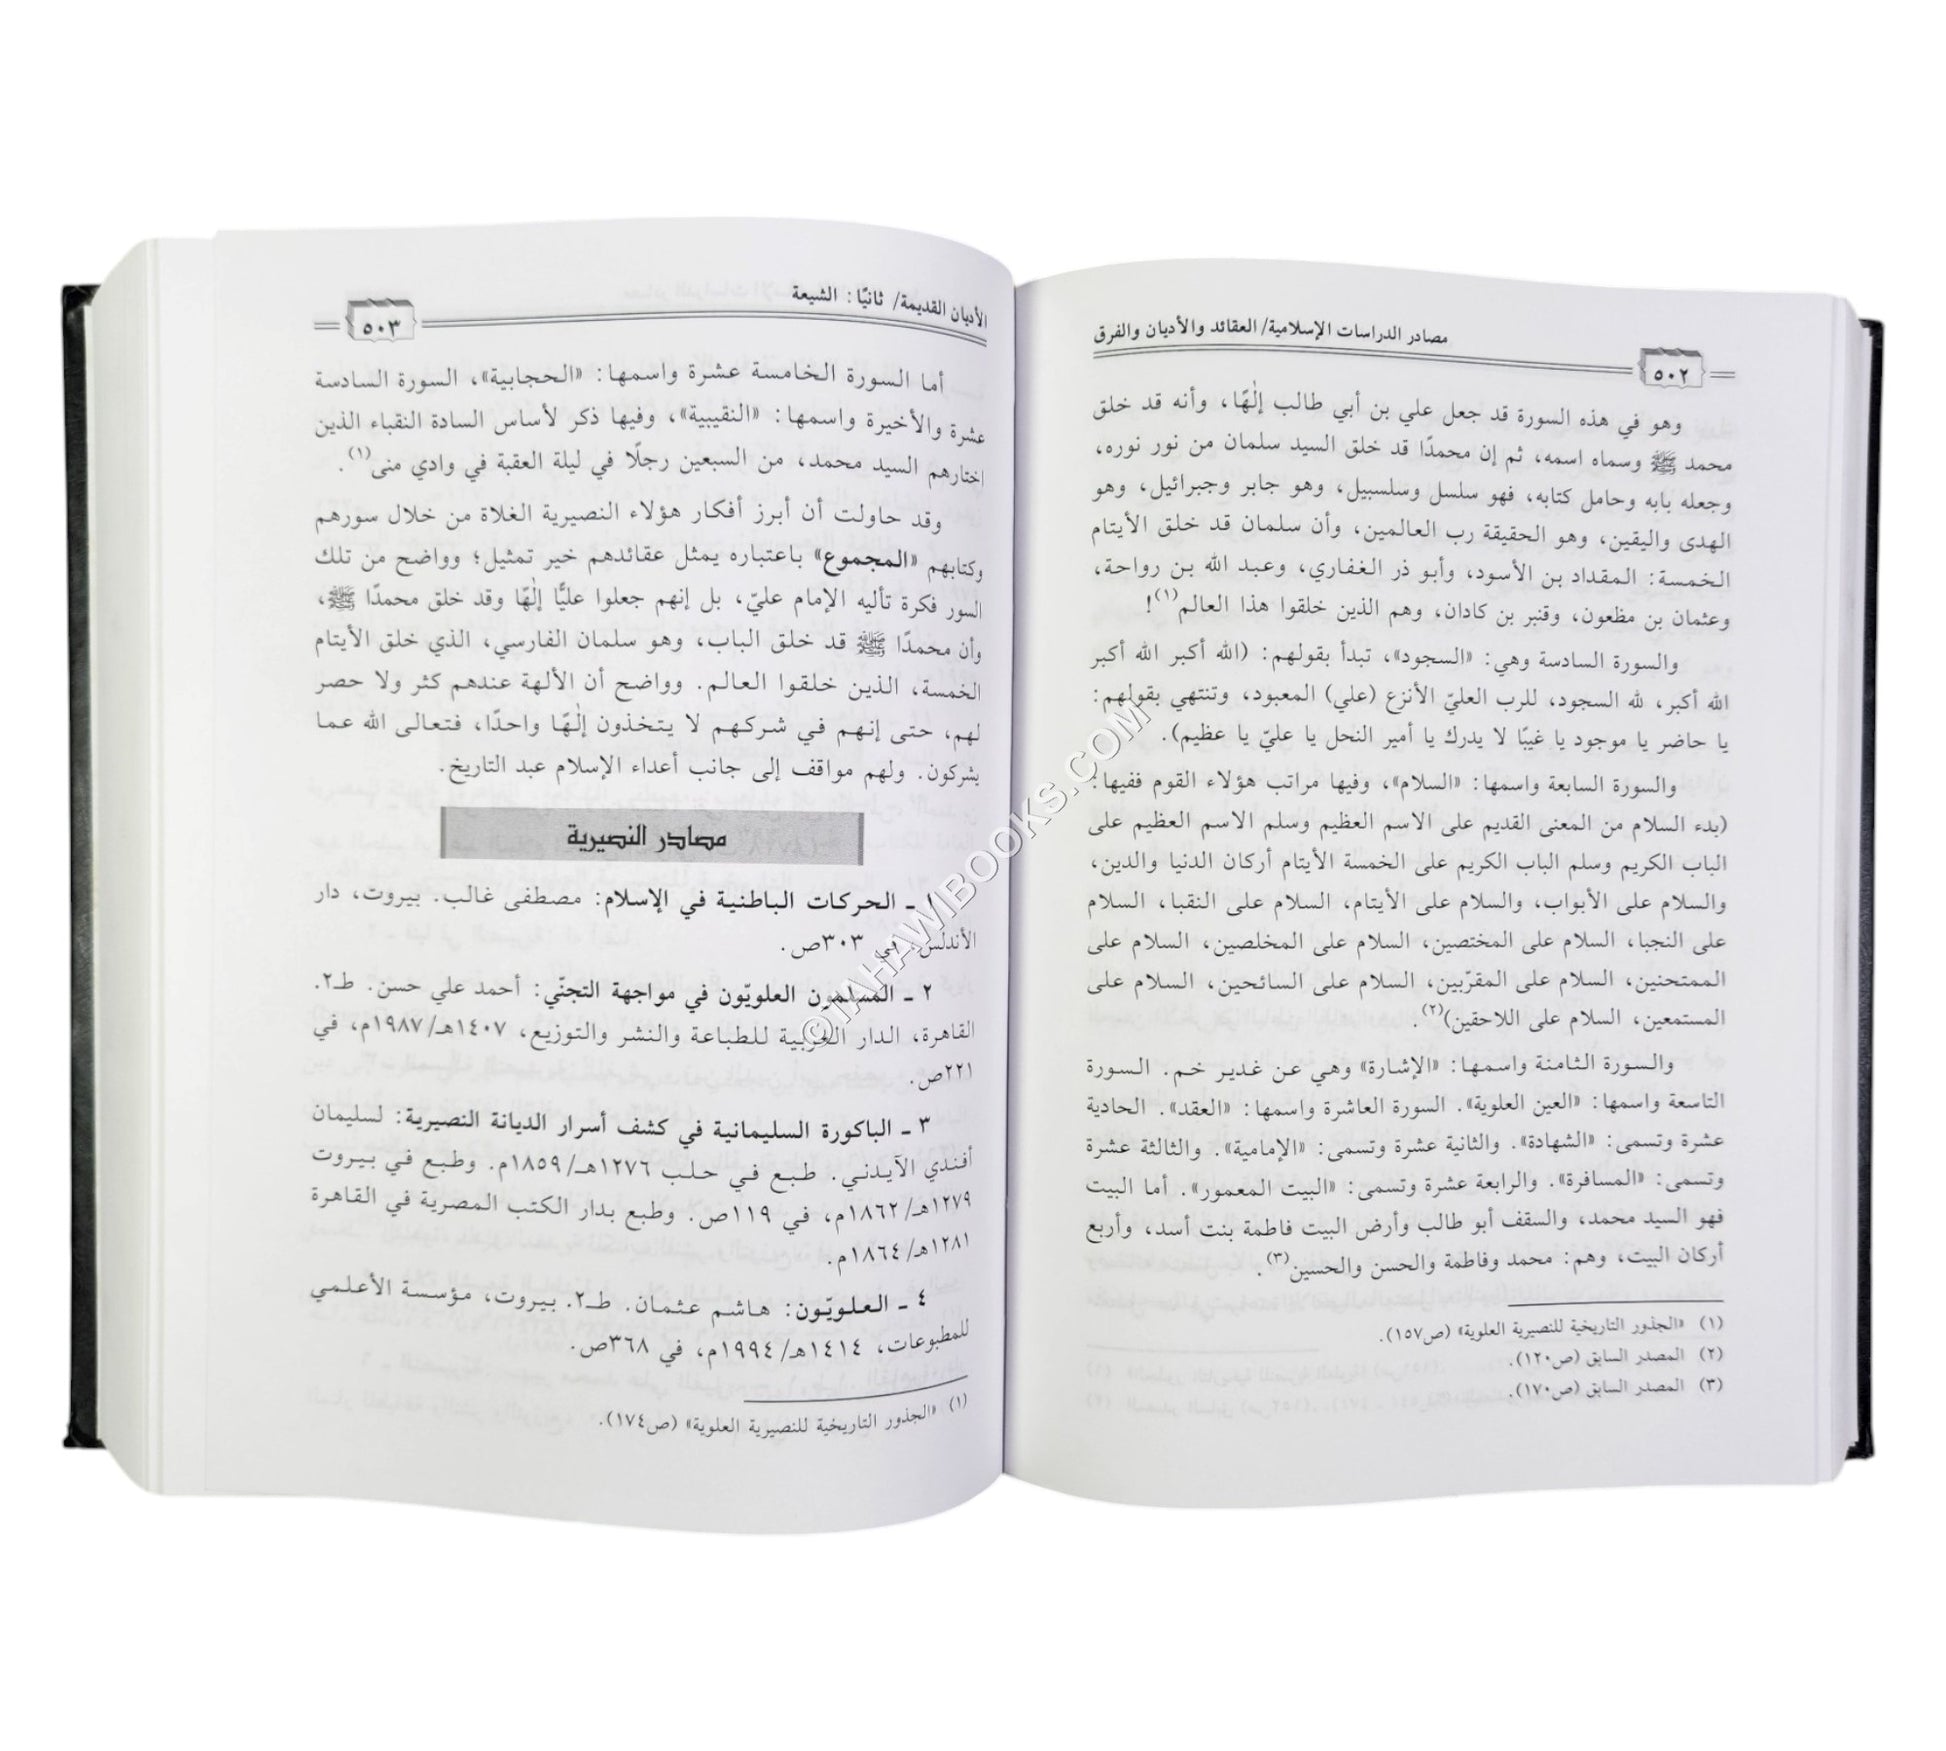 مصادر الدراسات الإسلامية/ العقائد والأديان والفرق
٥٠٢
وهو في هذه السورة قد جعل علي بن أبي طالب إلٰهًا، وأنه قد خلق
محمد ﷺ وسماه اسمه، ثم إن محمدًا قد خلق السيد سلمان من نور نوره،
وجعله بابه وحامل كتابه، فهو سلسل وسلسبيل، وهو جابر وجبرائيل، وهو
الهدى واليقين، وهو الحقيقة رب العالمين، وأن سلمان قد خلق الأيتام
الخمسة: المقداد بن الأسود، وأبو ذر الغفاري، وعبد الله بن رواحة،
وعثمان بن مظعون، وقنبر بن كادان، وهم الذين خلقوا هذا العالم(١)!
والسورة السادسة وهي: «السجود»، تبدأ بقولهم: (الله أكبر الله أكبر
الله أكبر، لله السجود، للرب العليّ الأنزع (علي) المعبود، وتنتهي بقولهم:
يا حاضر يا موجود يا غيبًا لا يدرك يا أمير النحل يا عليّ يا عظيم).
والسورة السابعة واسمها: «السلام»، وفيها مراتب هؤلاء القوم ففيها:
(بدء السلام من المعنى القديم على الاسم العظيم وسلم الاسم العظيم على
الباب الكريم وسلم الباب الكريم على الخمسة الأيتام أركان الدنيا والدين،
والسلام على الأبواب، والسلام على الأيتام، السلام على النقبا، السلام
على النجبا، السلام على المختصين، السلام على المخلصين، السلام على
الممتحنين، السلام على المقرّبين، السلام على السائحين، السلام على
المستمعين، السلام على اللاحقين)(٢).
والسورة الثامنة واسمها: «الإشارة» وهي عن غدير خم. السورة
التاسعة واسمها: «العين العلوية». السورة العاشرة واسمها: «العقد». الحادية
عشرة وتسمى: «الشهادة». والثانية عشرة وتسمى: «الإمامية». والثالثة عشرة
وتسمى: «المسافرة». والرابعة عشرة وتسمى: «البيت المعمور». أما البيت
فهو السيد محمد، والسقف أبو طالب وأرض البيت فاطمة بنت أسد، وأربع
أركان البيت، وهم: محمد وفاطمة والحسن والحسين(٣).
(١) «الجذور التاريخية للنصيرية العلوية» (ص١٥٧).
(٢) المصدر السابق (ص١٢٠).
(٣) المصدر السابق (ص١٧٠).
الأديان القديمة/ ثانيًا: الشيعة
٥٠٣
أما السورة الخامسة عشرة واسمها: «الحجابية»، السورة السادسة
عشرة والأخيرة واسمها: «النقيبية»، وفيها ذكر لأساس السادة النقباء الذين
اختارهم السيد محمد، من السبعين رجلًا في ليلة العقبة في وادي منى(١).
وقد حاولت أن أبرز أفكار هؤلاء النصيرية الغلاة من خلال سورهم
وكتابهم «المجموع» باعتباره يمثل عقائدهم خير تمثيل؛ وواضح من تلك
السور فكرة تأليه الإمام عليّ، بل إنهم جعلوا عليًّا إلٰهًا وقد خلق محمدًا ﷺ،
وأن محمدًا ﷺ قد خلق الباب، وهو سلمان الفارسي، الذي خلق الأيتام
الخمسة، الذين خلقوا العالم. وواضح أن الألهة عندهم كثر ولا حصر
لهم، حتى إنهم في شركهم لا يتخذون إلٰهًا واحدًا، فتعالى الله عما
يشركون. ولهم مواقف إلى جانب أعداء الإسلام عبد التاريخ.
مصادر النصيرية
١ ـ الحركات الباطنية في الإسلام: مصطفى غالب. بيروت، دار
الأندلس، في ٣٠٣ص.
٢ ـ المسلمون العلويّون في مواجهة التجنّي: أحمد علي حسن. طـ٢.
القاهرة، الدار العربية للطباعة والنشر والتوزيع، ١٤٠٧هـ/١٩٨٧م، في
٢٢١ص.
٣ ـ الباكورة السليمانية في كشف أسرار الديانة النصيرية: لسليمان
أفندي الآيدني. طبع في حلب ١٢٧٦هـ/١٨٥٩م. وطبع في بيروت
١٢٧٩هـ/١٨٦٢م، في ١١٩ص. وطبع بدار الكتب المصرية في القاهرة
١٢٨١هـ/١٨٦٤م.
٤ ـ العلويّون: هاشم عثمان. طـ٢. بيروت، مؤسسة الأعلمي
للمطبوعات، ١٤١٤هـ/١٩٩٤م، في ٣٦٨ص.
(١) «الجذور التاريخية للنصيرية العلوية» (ص١٧٤).
©TAHAWIBOOKS.COM